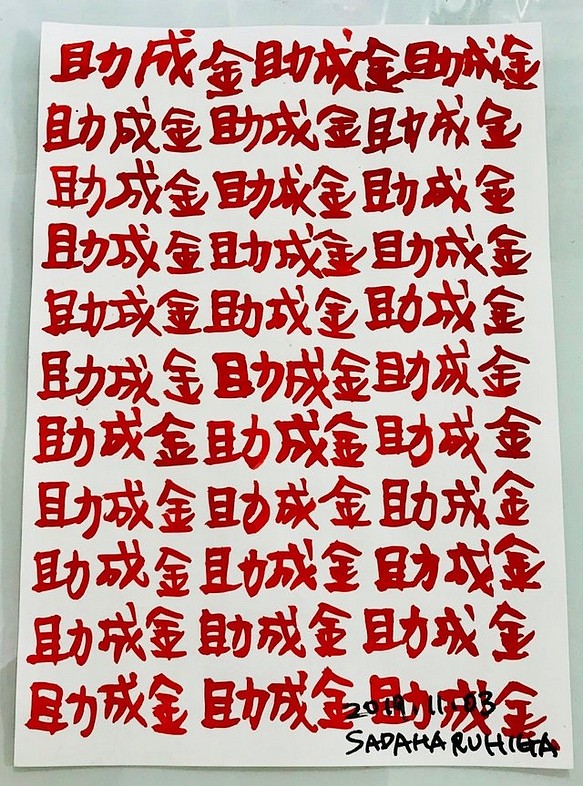 助成金助成金助成金
助成金助成金助成金
助成金助成金助成金
助成金助成金助成金
助成金助成金助成金
助成金助成金助成金
助成金助成金助成金
助成金助成金助成金
助成金助成金助成金
助成金助成金助成金
助成金助成金助成金
2019.11.03
SADAHARUHIGA